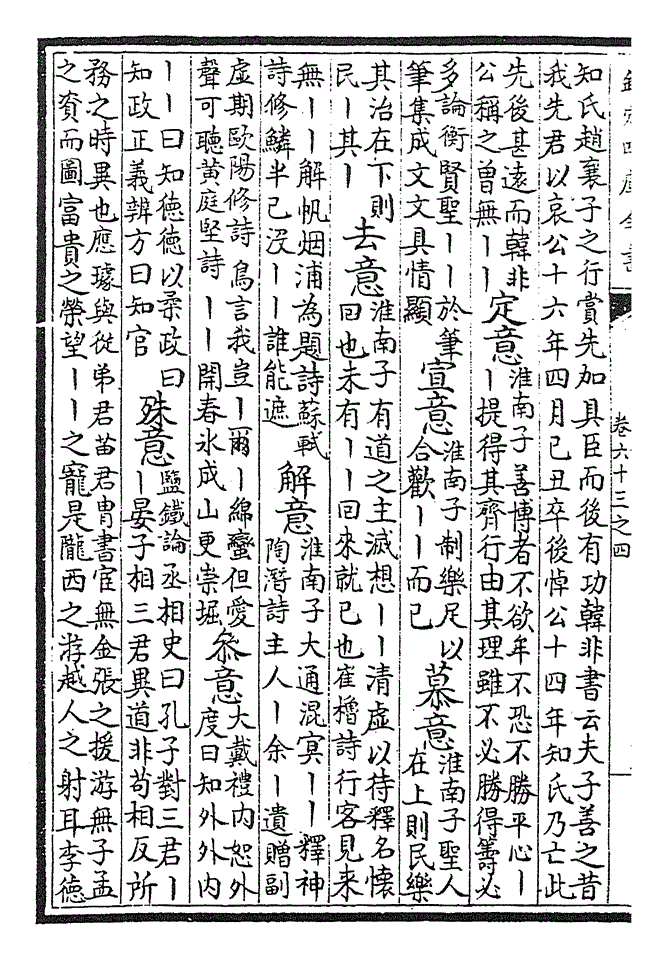 欽定四庫全書
卷六十三之四
知氏趙襄子之行賞先加具臣而後有功韓非書云夫子善之昔
我先君以哀公十六年四月己丑卒後悼公十四年知氏乃亡此
先後甚遠而韓非
公稱之曽無丨丨
定意
淮南子善博者不欲牟不恐不勝平心丨
丨提得其齊行由其理雖不必勝得籌必
多論衡賢聖丨丨於筆
筆集成文文具情顯
宣意
淮南子制樂足以
合歡丨丨而已
慕意
淮南子聖人
在上則民樂
其治在下則
民丨其丨
去意
淮南子有道之主滅想丨丨清虛以待釋名懷
回也未有丨丨回來就已也崔櫓詩行客見來
無丨丨解帆烟浦為題詩蘇軾
詩修鱗半已沒丨丨誰能遮
解意
淮南子大通混冥丨丨釋神
陶潛詩主人丨余丨遺贈副
虛期歐陽修詩鳥言我豈丨爾丨綿蠻但愛
聲可聽黃庭堅詩丨丨開春氷成山更崇堀
叅意
大戴禮内恕外
度曰知外外内
丨丨曰知德德以柔政曰
知政正義辨方曰知官
殊意
鹽鐵論丞相史曰孔子對三君丨
丨晏子相三君異道非苟相反所
務之時異也應璩與從弟君苗君胄書宦無金張之援游無子孟
之資而圖富貴之榮望丨丨之寵是隴西之游越人之射耳李德